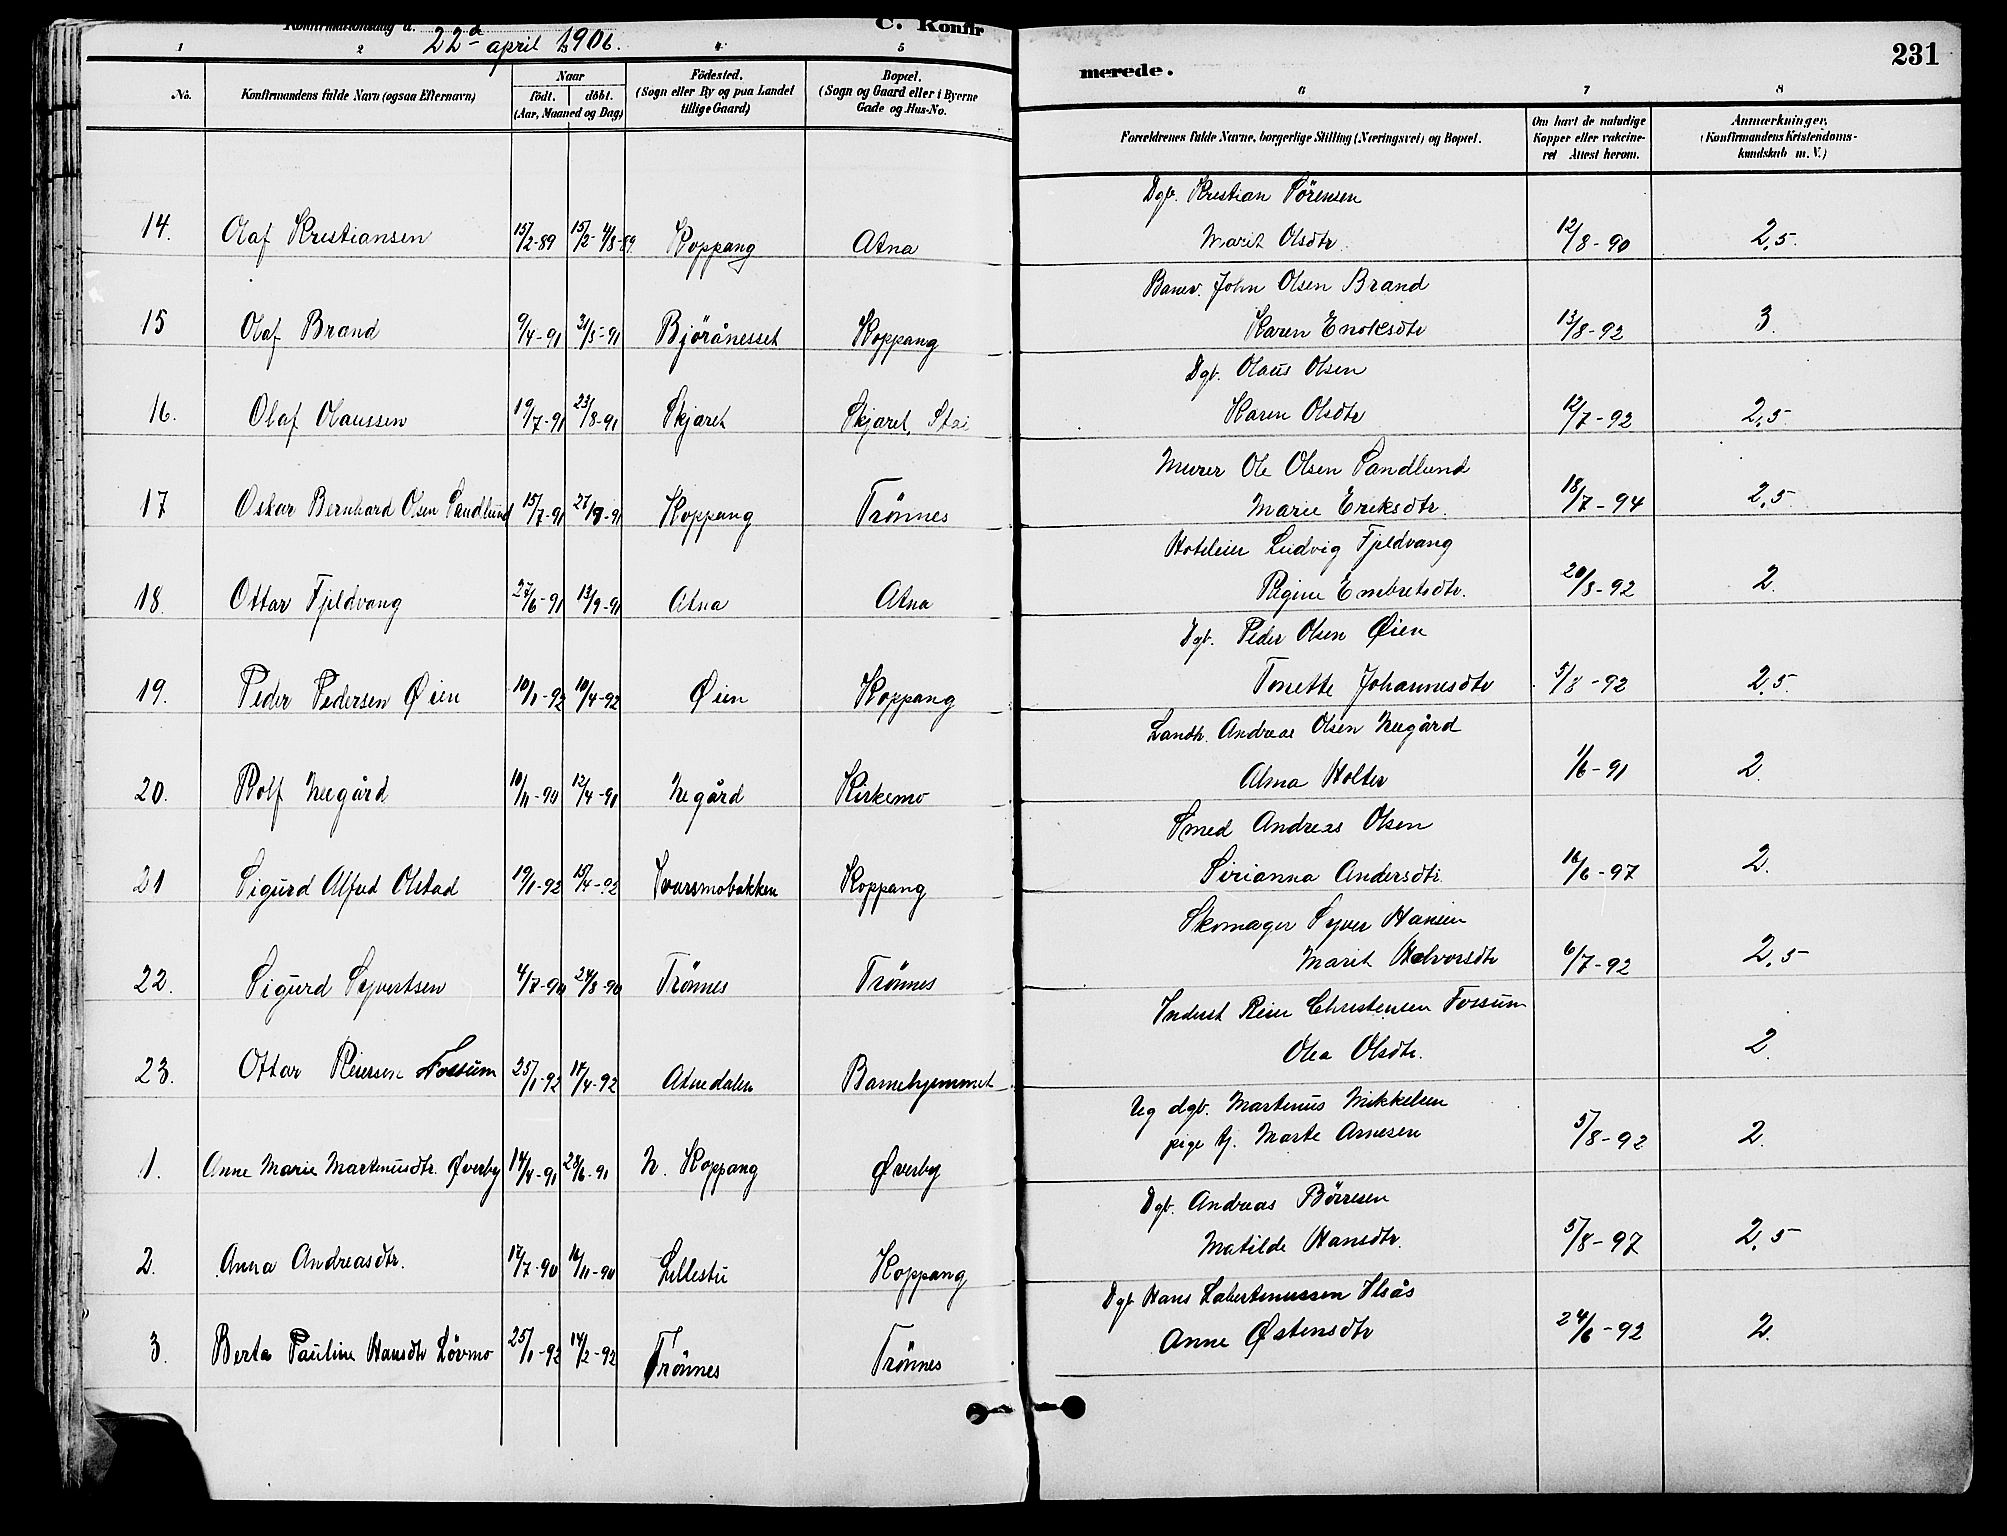 Konfirmationsdag d. 22d april 1906.
C. Konfir
merede.
231
1 2 3 4 5 6 7 8
No.
Konfirmandens fulde Navn (ogsaa Efternavn)
Naar
födt. döbt.
(Aar, Maaned og Dag)
Födested.
(Sogn eller By og paa Landet
tillige Gaard)
Bopæl.
(Sogn og Gaard eller i Byerne
Gade og Hus-No.
Forældrenes fulde Navne, borgerlige Stilling (Næringsvei) og Bopæl.
Om havt de naturlige
Kopper eller vakcine-
ret Attest herom.
Anmærkninger,
(Konfirmandens Kristendoms-
kundskab m. V.)
Dgb. Kristian Sörensen
14. Olaf Kristiansen 15/2-89 15/2- 4/8-89. Koppang Atna Marit Olsdtr. 12/8-90 2,5.
Banev. John Olsen Brand
15 Olaf Brand 9/4-91 31/5-91 Björånesset Koppang Karen Enoksdtr 13/8-92 3.
Dgb. Olaus Olsen
16. Olaf Olaussen 19/7-91 23/8-91 Skjaret Skjaret, Stai Karen Olsdtr 12/7-92 2,5.
Murer Ole Olsen Sandlund
17 Oskar Bernhard Olsen Sandlund 15/7-91 27/9-91 Koppang Trönnes Marie Eriksdtr. 18/7-94 2,5
Hoteleier Ludvig Fjeldvang
18. Ottar Fjeldvang 27/6-91 13/9-91 Atna Atna Regine Embretsdtr. 20/8-92 2.
Dgb. Peder Olsen Øien
19. Peder Pedersen Øien 10/1-92 10/4-92 Øien Koppang Tonette Johannesdtr 5/8-92 2,5.
Landh. Andreas Olsen Negård
20. Rolf Negård 10/11-90 12/4-91 Negård Kirkemo Alma Holter 1/6-91 2.
Smed Andreas Olsen
21 Sigurd Alfred Olstad 19/1-92 15/4-92 Ivarsmobakken Koppang Sirianna Andersdtr. 16/6-97 2.
Skomager Syver Hansen
22. Sigurd Syvertsen 4/7-90 24/8-90 Trönnes Trönnes Marit Halvorsdtr 6/7-92 2,5
Inderst Reier Christensen Fossum
23. Ottar Reiersen Fossum 25/1-92 17/4-92 Atnedalen Barnehjemmet Olea Olsdtr. 2.
Ug dgb. Martinus Mikkelsen
pige tj. Marte Arnesen
1. Anne Marie Martinusdtr. Øverby 14/4-91 28/6-91 N. Koppang Øverby 5/8-92 2.
Dgb. Andreas Börresen
2. Anna Andreasdtr. 17/7-90 16/11-90 Lillestu Koppang Matilde Hansdtr. 5/8-97 2,5
Dgb Hans Ilsås
3. Berta Pauline Hansdtr Lövmo 25/1-92 14/2-92 Trönnes Trönnes Anne Østensdtr 24/6-92 2.